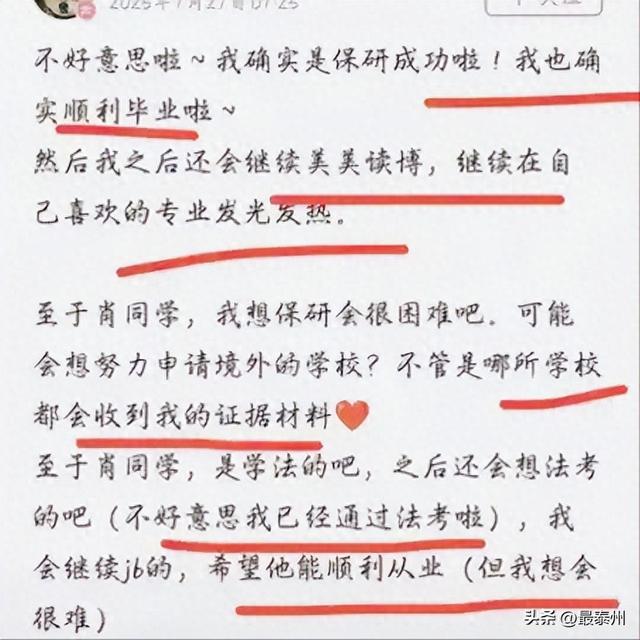 2025年7月27日 07:25
不好意思啦～我确实是保研成功啦！我也确
实顺利毕业啦～
然后我之后还会继续美美读博，继续在自
己喜欢的专业发光发热。
至于肖同学，我想保研会很困难吧。可能
会想努力申请境外的学校？不管是哪所学校
都会收到我的证据材料❤️
至于肖同学，是学法的吧，之后还会想法考
的吧（不好意思我已经通过法考啦），我
会继续jb的，希望他能顺利从业（但我想会
很难）
头条 @最泰州